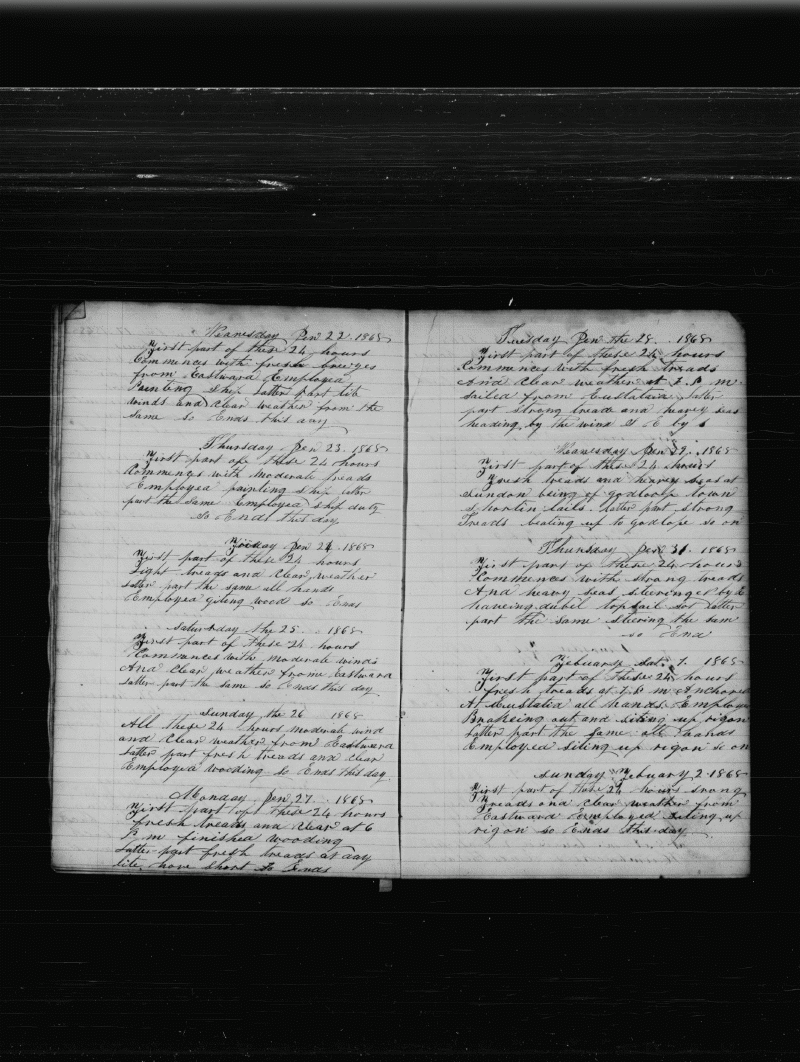 Wednesday Jen 22. 1868
First part of these 24 hours
Commences with fresh breezes
from Eastward Employed
Painting ship Latter part
winds and clear weather from the
same so Ends this day
Thursday Jen 23. 1868
First part of these 24 hours
Commences with moderate treads
Employed painting ship
part the same Employed ship duty
so Ends this day
Friday Jen 24. 1868
First part of these 24 hours
Light treads and Clear weather
Latter part the same all hands
Employed giting wood so Ends
Saturday the 25. 1868
First part of these 24 hours
Commences with moderate winds
And Clear weather frome Eastward
Latter part the same so Ends this day
Sunday the 26 1868
All these 24 hours moderate wind
and Clear weather from Eastward
Latter part fresh treads and clear
Employed wooding so Ends this day
Monday Jen 27. 1868
First part of these 24 hours
fresh treads and clear at 6
P m finished wooding
Latter part fresh treads at day
lite hove short So Ends
Tuesday Jen the 28. 1868
First part of these 24 hours
Commences with fresh treads
And Clear weather at 7. P m
sailed from later
part strong treads and heavey seas
heading by the wind by
Wensday Jen 29. 1868
First part of these 24 hours
Fresh treads and heavey seas at
sundon being of town
shortin sails. Latter part strong
Treads beating up to so on
Thursday Jen 31. 1868
First part of these 24 hours
Commences with strong treads
And heavy seas steering by
haveing dubel topsail Latter
part the same stering the sam
so End
Febuary Sat. 1. 1868
First part of these 24 hours
fresh treads at 7. P m Anchored
At all hands Employed
out and siting up rigon
Latter part the same all haands
Employed siting up rigon so on
Sunday Febuary 2 1868
First part of these 24 hours srong
Treads and clear weather from
Eastward Employed siting up
rigon so Ends this day